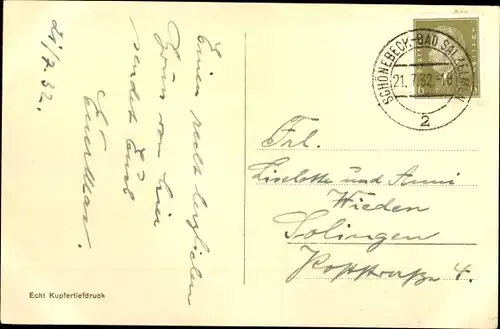 21./7.32.
Einen recht herzlichen
Gruß von hier
sendet Euch
SCHÖNEBECK-BAD SALZELMEN
21.7.32.-18
2
Frl.
Liselotte und Anni
Wieden
Solingen
Poststraße 4.
Echt Kupfertiefdruck